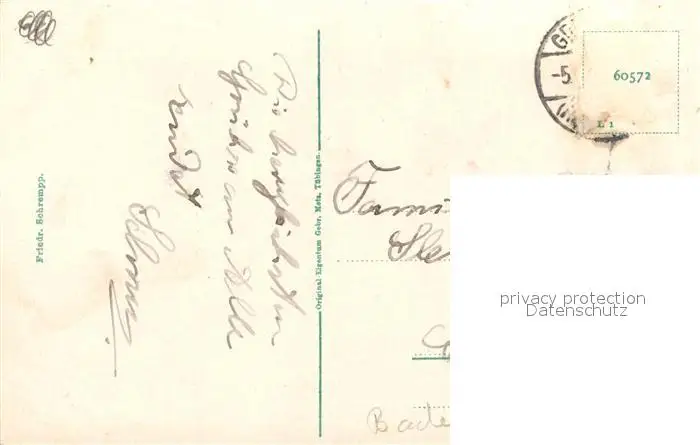 Die herzlichsten
Grüße an Alle
sendet
Friedr. Schrempp.
Original Eigentum Gebr. Metz, Tübingen.
60572
L 1
-5
Fami
Bade
privacy protection
Datenschutz